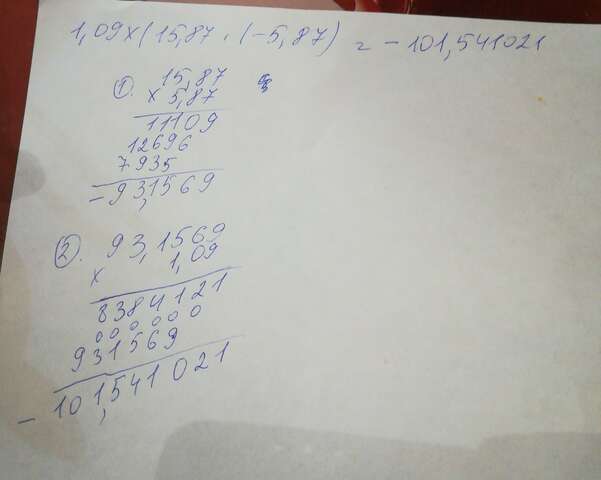 1,09x(15,87 · (-5,87) = -101,541021
1. 15,87
x 5,87
11109
12696
7935
-93,1569
2. 93,1569
x 1,09
8384121
000000
931569
-101,541021